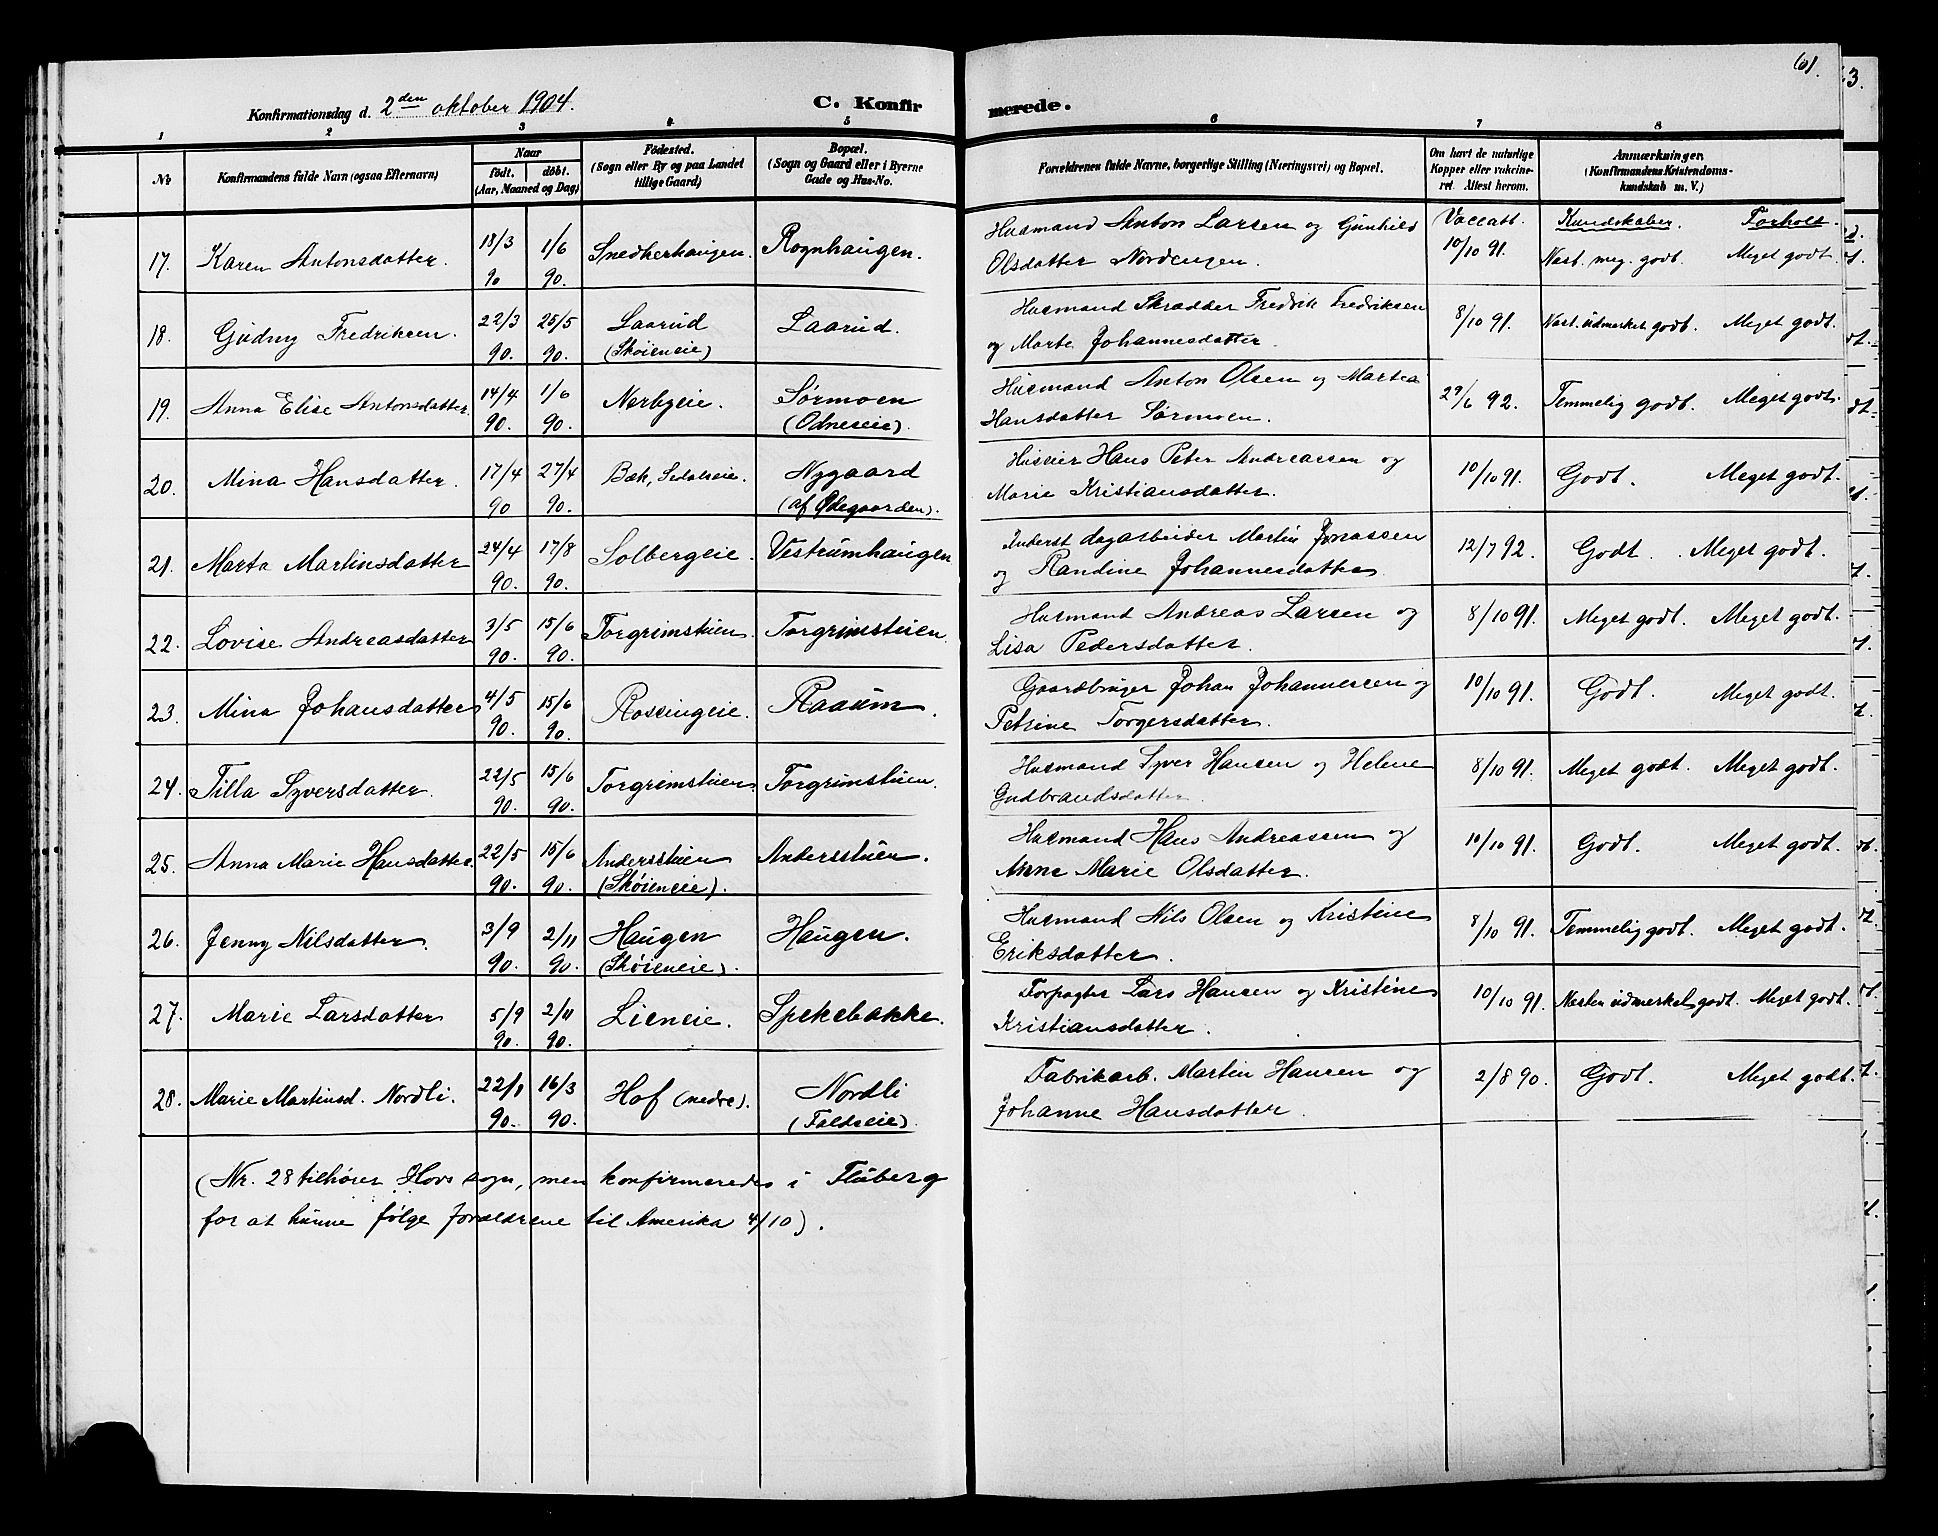 61.
Konfirmationsdag d. 2den oktober 1904.
C. Konfirmerede.
1 2 3 4 5 6 7 8
No
Konfirmandens fulde Navn (ogsaa Efternavn)
Naar født. døbt. (Aar, Maaned og Dag)
Fødested. (Sogn eller By og paa Landet tillige Gaard)
Bopæl. (Sogn og Gaard eller i Byerne Gade og Hus-No.
Forældrenes fulde Navne, borgerlige Stilling (Næringsvei) og Bopæl.
Om havt de naturlige Kopper eller vakcineret. Attest herom.
Anmærkninger. (Konfirmandens Kristendomskundskab m. V.)
Vaccatt. Kundskaber. Forhold.
17. Karen Antonsdatter. 18/3 90 1/6 90. Snedkerhaugen. Rognhaugen. Husmand Anton Larsen og Gunhild Olsdatter Nordengen. 10/10 91. Næst. meg. godt. Meget godt.
18. Gudny Fredriksen. 22/3 90. 25/5 90. Laarud (Skøieneie) Laarud. Husmand Skrædder Fredrik Fredriksen og Marte Johannesdatter. 8/10 91. Næst. udmerket godt. Meget godt.
19. Anna Elise Antonsdatter 14/4 90. 1/6 90. Nørbyeie. Sørmoen (Odneseie). Husmand Anton Olsen og Martea Hansdatter Sørmoen. 29/6 92. Temmelig godt. Meget godt.
20. Mina Hansdatter. 17/4 90 27/4 90. Bæk, Sedalseie. Nygaard (af Ødegaarden). Huseier Hans Peter Andreassen og Marie Kristiansdatter. 10/10 91. Godt. Meget godt.
21. Marta Martinsdatter 24/4 90. 17/8 90. Solbergeie. Vestrumhaugen Inderst dagarbeider Martin Jonassen og Randine Johannesdatter 12/7 92. Godt. Meget godt.
22. Lovise Andreasdatter 3/5 90. 15/6 90. Torgrimstuen. Torgrimstuen. Husmand Andreas Larsen og Lisa Pedersdatter. 8/10 91. Meget godt. Meget godt.
23. Mina Johansdatter 4/5 90. 15/6 90. Rossingeie. Raaum. Gaardbruger Johan Johannessen og Petrine Torgersdatter. 10/10 91. Godt. Meget godt.
24. Tilla Syversdatter. 22/5 90. 15/6 90. Torgrimstuen Torgrimstuen. Husmand Syver Hansen og Helene Gudbrandsdatter. 8/10 91. Meget godt. Meget godt.
25. Anna Marie Hansdatter. 22/5 90. 15/6 90. Andersstuen (Skøieneie). Andersstuen. Husmand Hans Andreassen og Anne Marie Olsdatter. 10/10 91. Godt. Meget godt.
26. Jenny Nilsdatter. 3/9 90. 2/11 90. Haugen (Skøieneie). Haugen. Husmand Nils Olsen og Kristine Eriksdatter. 8/10 91. Temmelig godt. Meget godt.
27. Marie Larsdatter 5/9 90. 2/11 90. Lieneie. Spekebakke. Forpagter Lars Hansen og Kristine Kristiansdatter. 10/10 91. Næsten udmerket godt. Meget godt.
28. Marie Martinsd. Nordli. 22/1 90. 16/3 90. Hof (nedre). Nordli (Faldseie). Fabrikarb. Martin Hansen og Johanne Hansdatter. 2/8 90. Godt. Meget godt.
(Nr. 28 tilhører Hovs sogn, men konfirmeredes i Fluberg
for at kunne følge forældrene til Amerika 4/10).